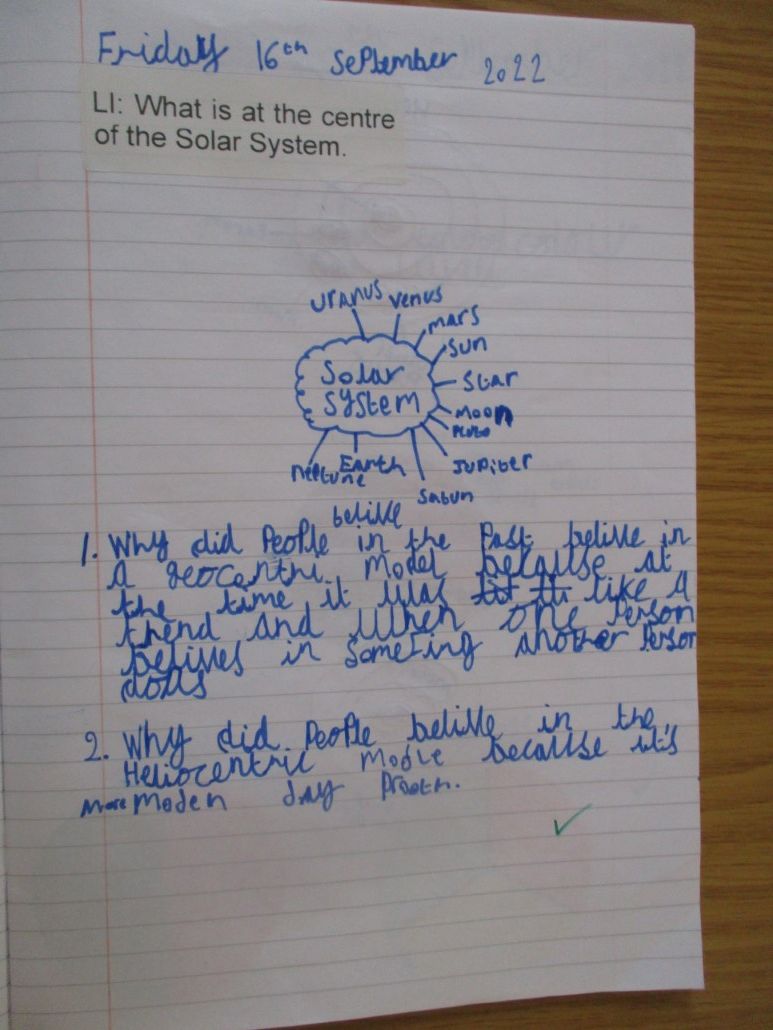 Friday 16th September 2022
LI: What is at the centre
of the Solar System.
Uranus Venus
Mars
Sun
Solar
System
Star
Moon
Pluto
Jupiter
Neptune Earth
Satun
belive
1. Why did People in the Past belive in
a geocentri Model because at
the time it was like a
thend and when one Person
belives in someting another Person
2. Why did People belive in the
Heliocentric Modle because it's
More Moden day